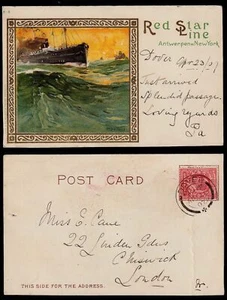 Red Star
Line
Antwerpen-New York
Dover Apr 23/09
Just arrived
Splendid passage
Loving regards
Pa
POST CARD
Miss E. Cane
22 Linden Gdns
Chiswick
London
W.
THIS SIDE FOR THE ADDRESS.